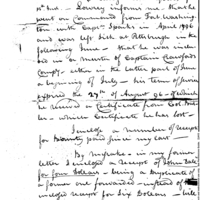 10th inst. Lowrey informs me that he
went on Command from Fort Washing-
ton with Captn Sparks in April 1796
and was left sick at Pittsburgh in the
following June - that he was inclu-
ded in a muster of Captain Crawfords
Company either in the latter part of June
a beginning of July - his term of service
expired on 27th of August 96 of which
he received a Certificate from Col.
which Certificate he has lost -
I inclose a number of receipts
for Bounty paid since my last.
By mistake - in my former
letter I inclosed a receipt of John
for four Dollars - being a Duplicate of
a former one forwarded - instead of
inclosed receipt for Six Dollars -